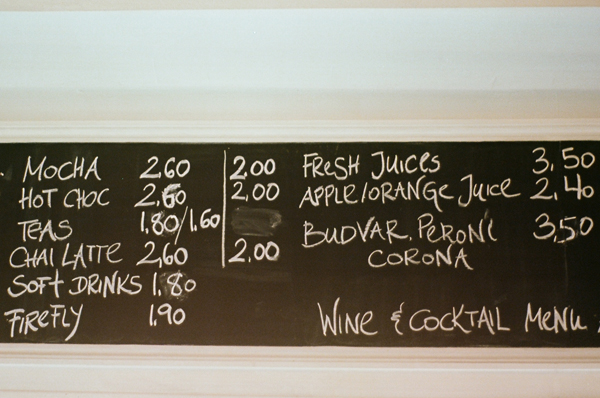 MOCHA 2.60 2.00
HOT CHOC 2.60 2.00
TEAS 1.80/1.60
CHAI LATTE 2.60 2.00
SOFT DRINKS 1.80
FIREFLY 1.90
FRESH JUICES 3.50
APPLE/ORANGE JUICE 2.40
BUDVAR, PERONI 3.50
CORONA
WINE & COCKTAIL MENU